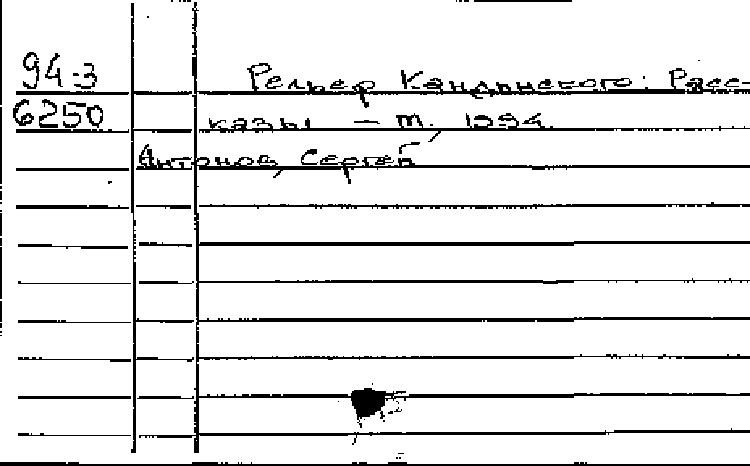 94-3 Рельеф Кандинского: Расс-
6250 казы – т, 1994.
Антонов, Сергей